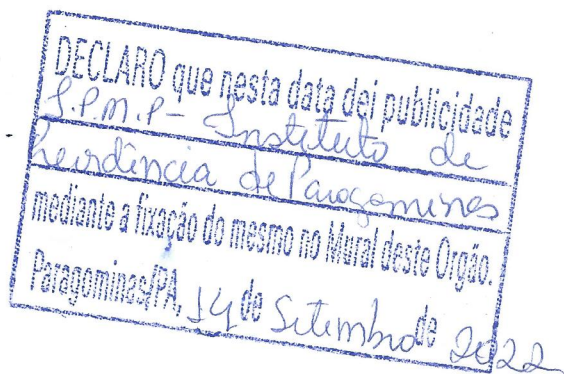 DECLARO que nesta data dei publicidade
I.P.M.P - Instituto de
Previdência de Paragominas
mediante a fixação do mesmo no Mural deste Orgão.
Paragominas/PA, 14 de Setembro de 2022